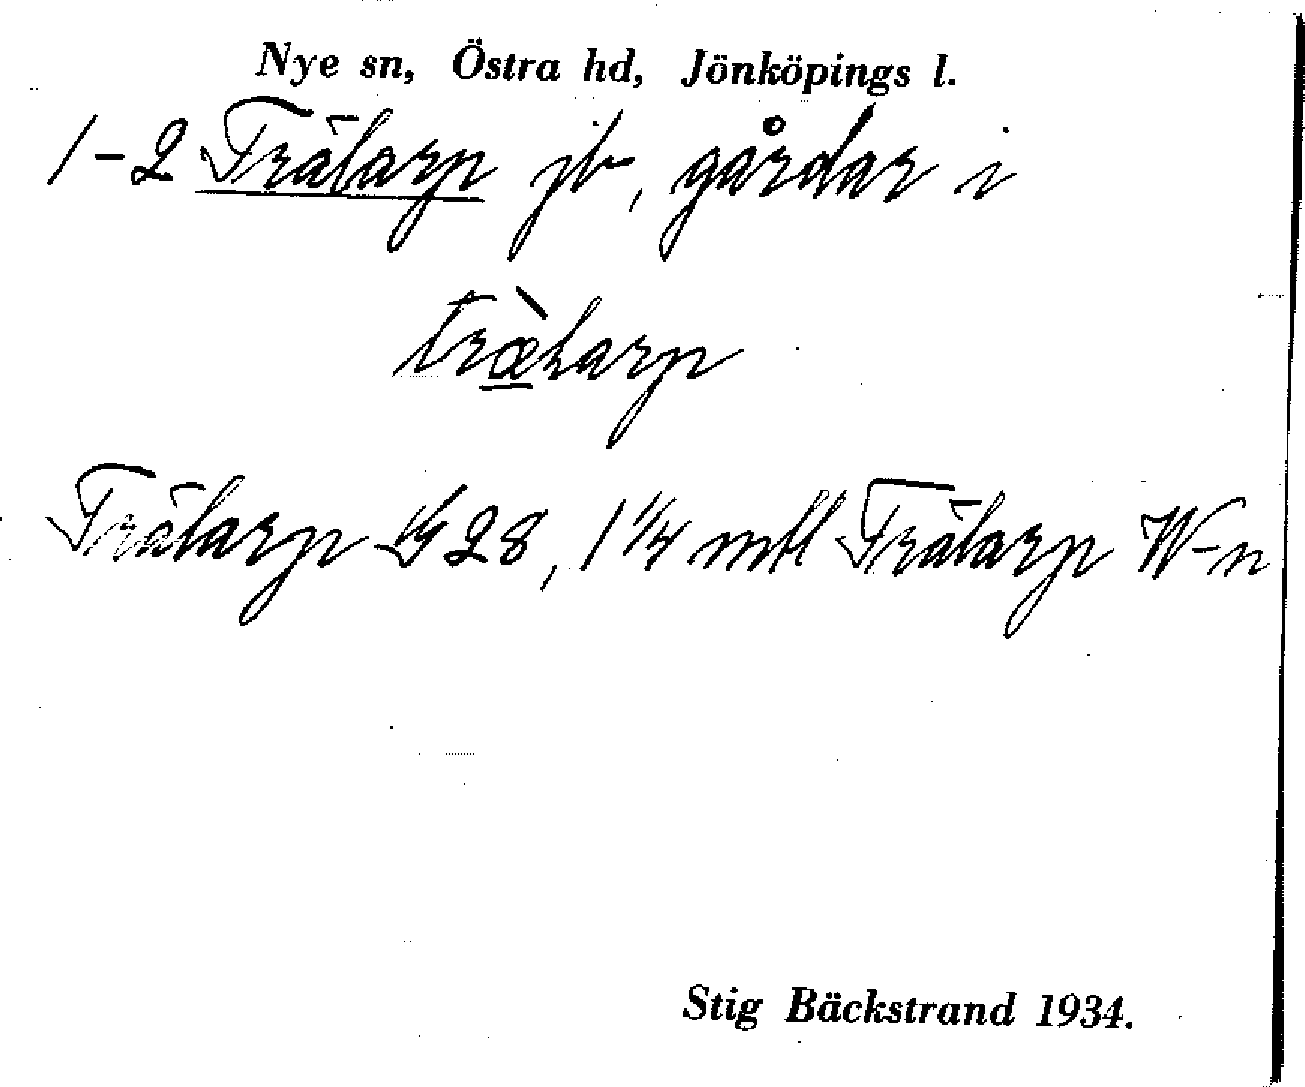 Nye sn, Östra hd, Jönköpings l.
1-2 Trälarp jb, gårdar i
træ̀larp
Trälarp G28, 1 1/4 mtl Trälarp W-n
Stig Bäckstrand 1934.